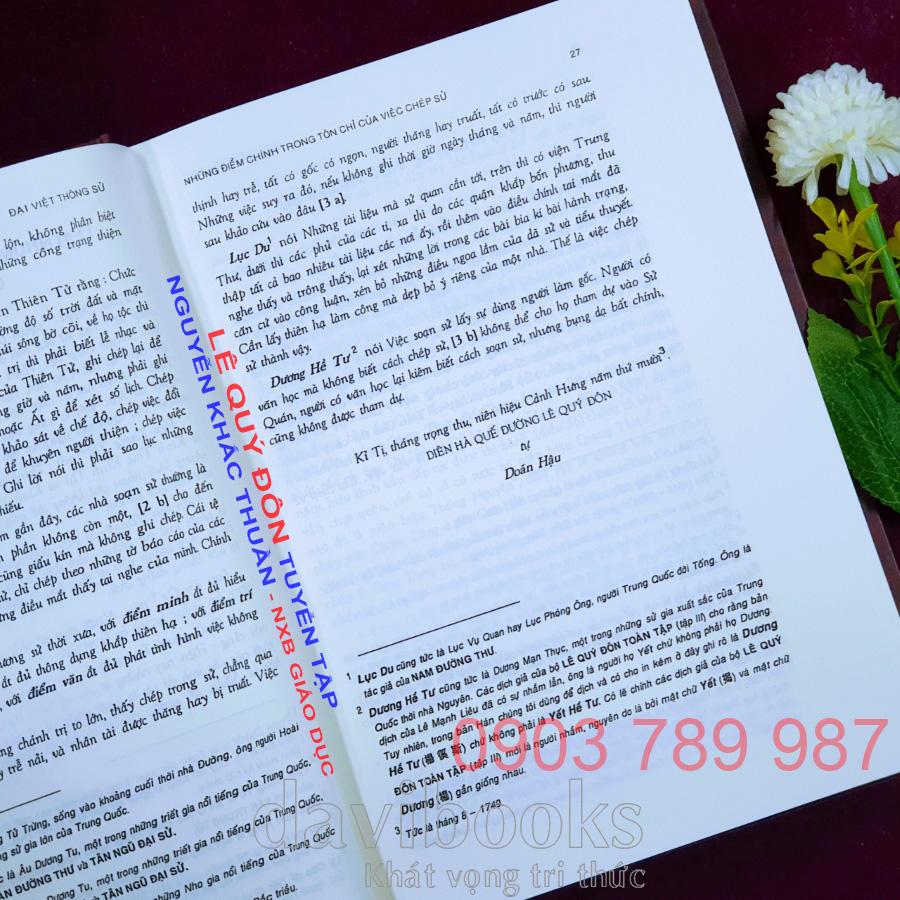 ĐẠI VIỆT THÔNG SỬ
lộn, không phân biệt
những công trạng thiện
Thiên Tử rằng: Chức
độ số trời đất và mặt
núi sông bờ cõi, về họ tộc thì
trị thì phải biết lễ nhạc và
của Thiên Tử, ghi chép lại để
giờ và năm, nhưng phải ghi
hoặc Ất gì để xét số lịch. Chép
khảo sát về chế độ, chép việc đổi
để khuyên người thiện; chép việc
Ghi lời nói thì phải sao lục những
hiếu.
gần đây, các nhà soạn sử thường là
phần không còn một, [2 b] cho đến
cũng giấu kín mà không ghi chép. Cái tệ
sử, chỉ chép theo những tờ báo cáo của các
những điều mắt thấy tai nghe của mình. Chính
sử thời xưa, với điểm minh ắt đủ hiểu
ắt đủ thông dụng khắp thiên hạ; với điểm trí
với điểm văn ắt đủ phát tình hình việc không
chánh trị to lớn, thấy chép trong sử, chẳng qua
trễ nải, và nhân tài được thăng hay bị truất. Việc
Tử Trừng, sống vào khoảng cuối thời nhà Đường, ông người Hoài
sử gia lớn của Trung Quốc.
là Âu Dương Tu, một trong những triết gia nổi tiếng của Trung Quốc,
ĐƯỜNG THƯ và TÂN NGŨ ĐẠI SỬ.
Dương Tu, một trong những triết gia nổi tiếng của Trung Quốc,
ĐƯỜNG THƯ và TÂN NGŨ ĐẠI SỬ.
những Nho gia nổi tiếng của Trung Quốc
Bắc triều.
27
NHỮNG ĐIỂM CHÍNH TRONG TÔN CHỈ CỦA VIỆC CHÉP SỬ
thịnh hay trễ, tất có gốc có ngọn, người thăng hay truất, tất có trước có sau.
Những việc suy ra đó, nếu không ghi thời giờ ngày tháng và năm, thì người
sau khảo cứu vào đâu [3 a].
Lục Du1 nói Những tài liệu mà sử quan cần tới, trên thì có viện Trung
Thư, dưới thì các phủ của các ti, xa thì do các quận khắp bốn phương, thu
thập tất cả bao nhiêu tài liệu các nơi ấy, rồi thêm vào điều chính tai mắt đã
nghe thấy và trông thấy, lại xét những lời trong các bài bia kí bài hành trạng,
căn cứ vào công luận, xén bỏ những điều ngoa lầm của dã sử và tiểu thuyết.
Cần lấy thiên hạ làm công mà dẹp bỏ ý riêng của một nhà. Thế là việc chép
sử thành vậy.
Dương Hề Tư2 nói Việc soạn sử lấy sự dùng người làm gốc. Người có
văn học mà không biết cách chép sử, [3 b] không thể cho họ tham dự vào Sử
Quán, người có văn học lại kiêm biết cách soạn sử, nhưng bụng dạ bất chính,
cũng không được tham dự.
Kỉ Tị, tháng trọng thu, niên hiệu Cảnh Hưng năm thứ mười3.
DIÊN HÀ QUẾ ĐƯỜNG LÊ QUÝ ĐÔN
tự
Doãn Hậu
1 Lục Du cũng tức là Lục Vụ Quan hay Lục Phóng Ông, người Trung Quốc đời Tống. Ông là
tác giả của NAM ĐƯỜNG THƯ.
2 Dương Hề Tư cũng tức là Dương Mạn Thục, một trong những sử gia xuất sắc của Trung
Quốc thời nhà Nguyên. Các dịch giả của bộ LÊ QUÝ ĐÔN TOÀN TẬP (tập III) cho rằng bản
dịch của Lê Mạnh Liêu đã có sự nhầm lẫn, ông là người họ Yết chứ không phải họ Dương.
Tuy nhiên, trong bản Hán chúng tôi dùng để dịch và có cho in kèm ở đây ghi rõ là Dương
Hề Tư (楊傒斯) chứ không phải là Yết Hề Tư. Có lẽ chính các dịch giả của bộ LÊ QUÝ
ĐÔN TOÀN TẬP (tập III) mới là người nhầm, nguyên do là bởi mặt chữ Yết (揭) và mặt chữ
Dương (楊) gần giống nhau.
3 Tức là tháng 8 - 1749.
LÊ QUÝ ĐÔN TUYỂN TẬP
NGUYỄN KHẮC THUẦN - NXB GIÁO DỤC
0903 789 987
davibooks
Khát vọng tri thức